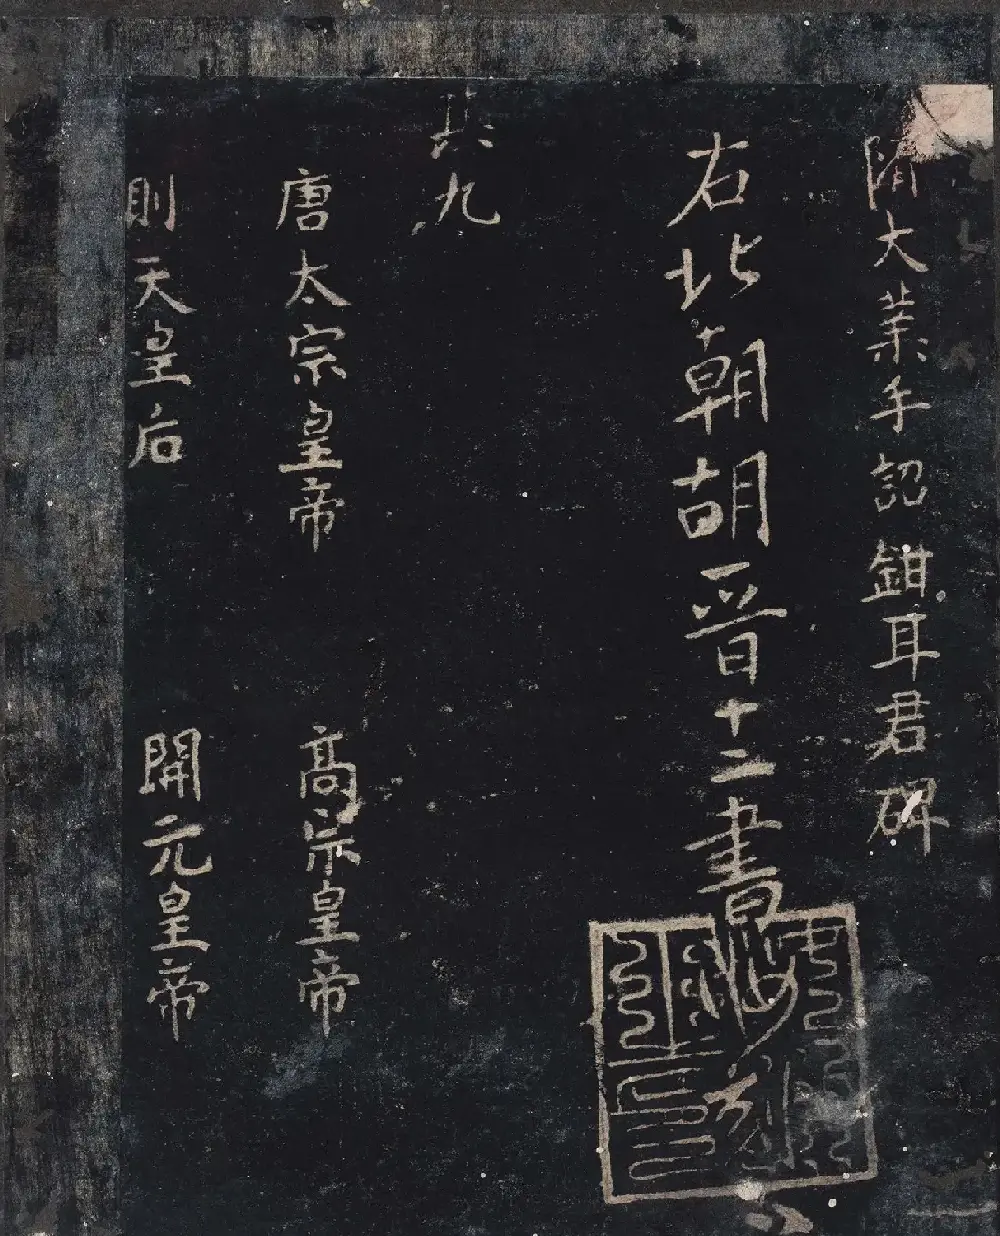 隋大業手詔鉗耳君碑
右北朝胡晉十二書
其九
唐太宗皇帝 高宗皇帝
則天皇后 開元皇帝